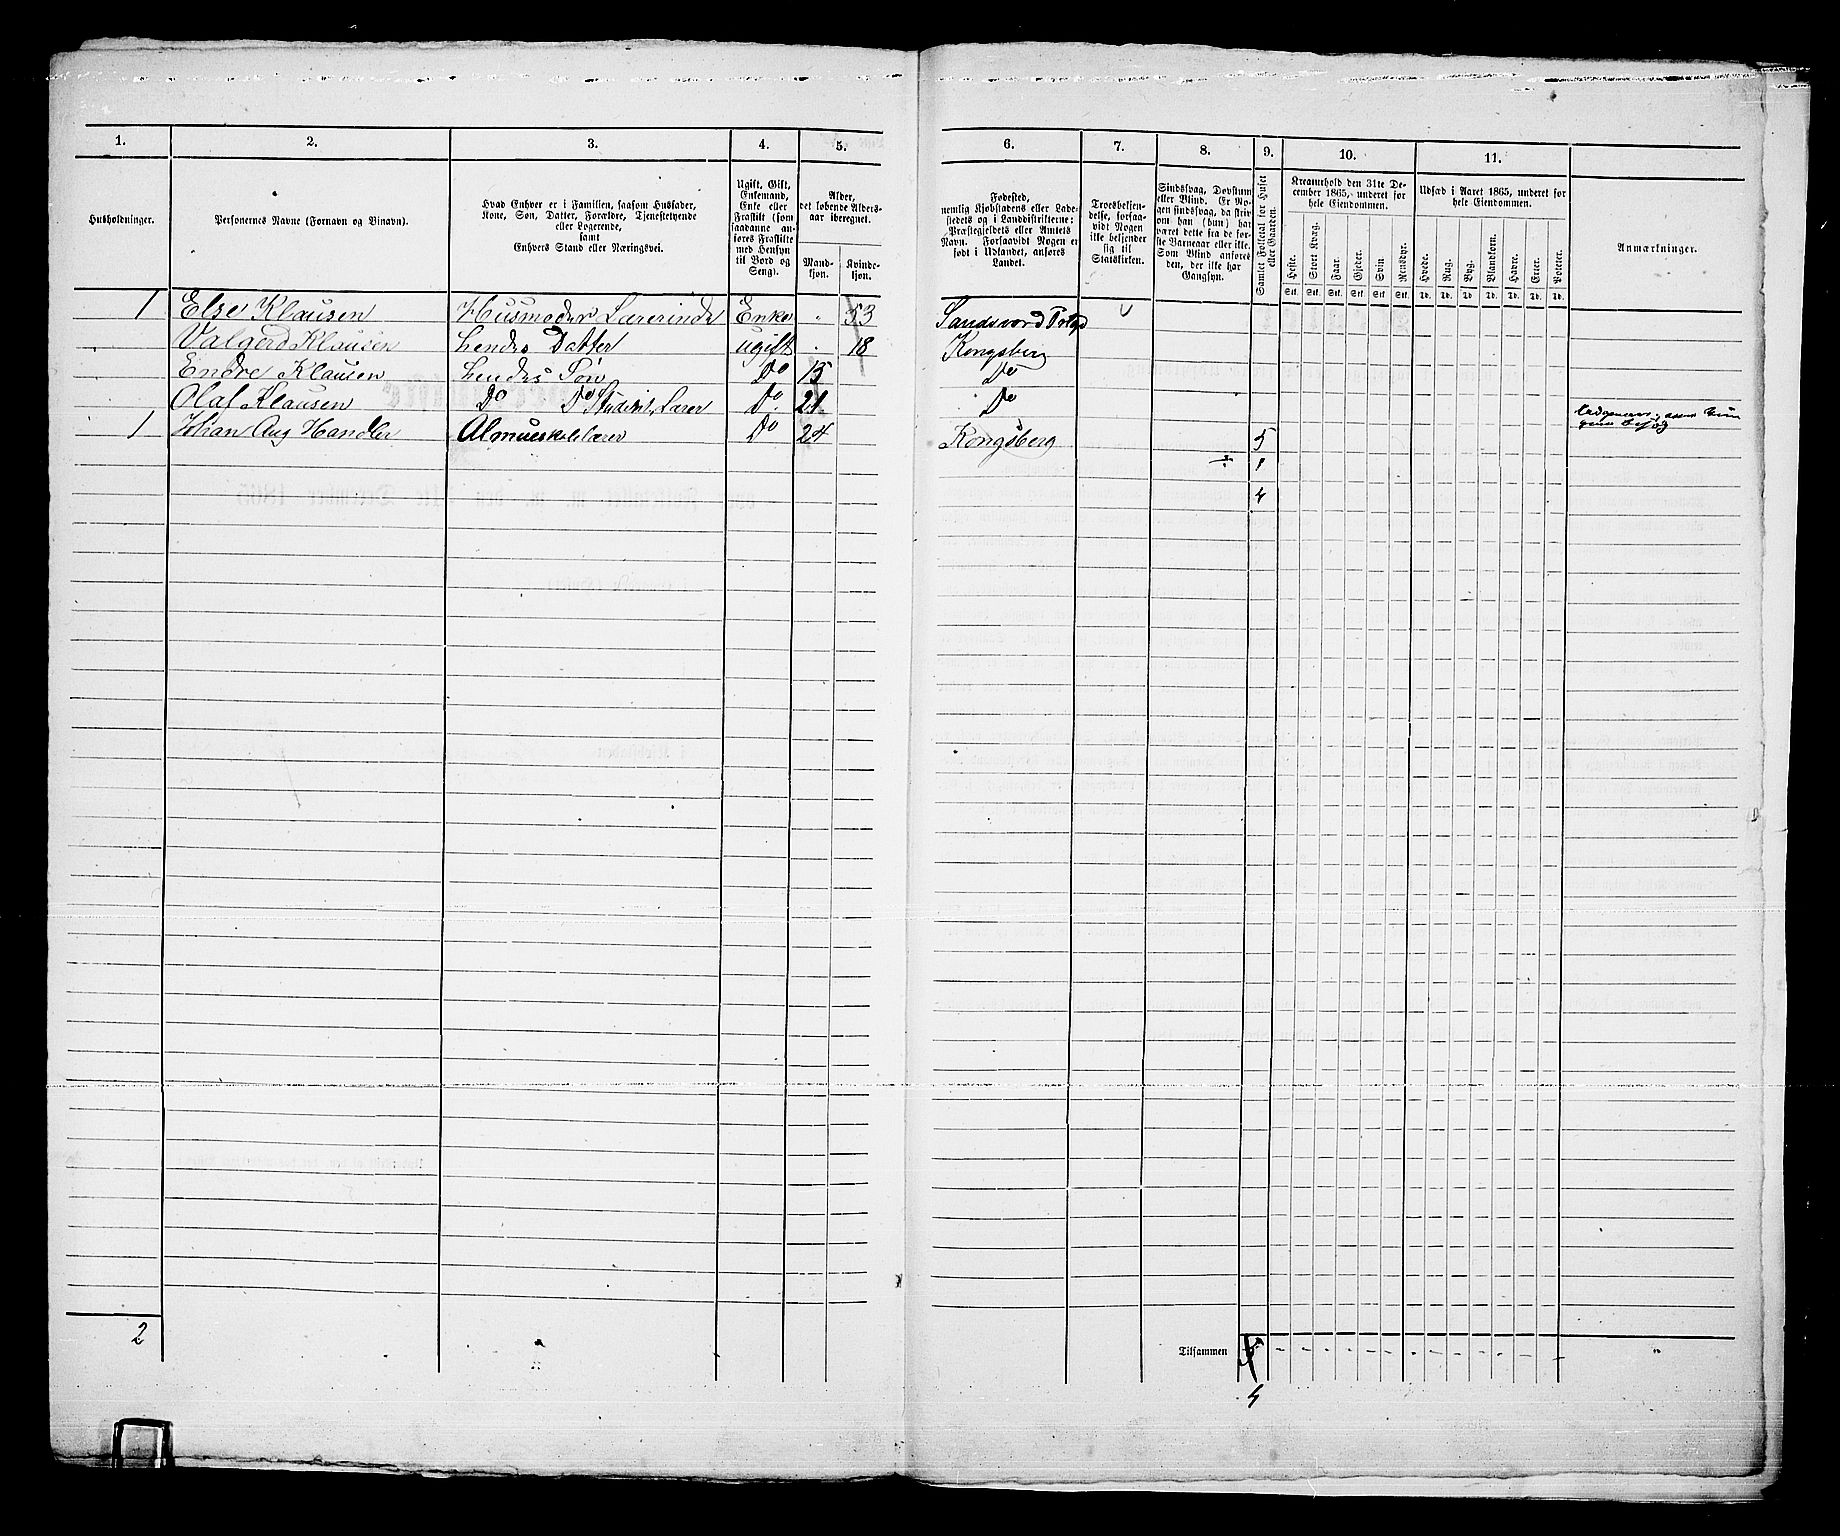 1. 2. 3. 4. 5. 6. 7. 8. 9. 10. 11.
Husholdninger.
Personernes Navne (Fornavn og Binavn).
Hvad Enhver er i Familien, saasom Husfader,
Kone, Søn, Datter, Forældre, Tjenestetyende
eller Logerende,
samt
Enhvers Stand eller Næringsvei.
Ugift, Gift,
Enkemand,
Enke eller
Fraskilt (som
saadanne an-
føres Fraskilte
med Hensyn
til Bord og
Seng).
Alder,
det løbende Alders-
aar iberegnet.
Mand-
kjøn.
Kvinde-
kjøn.
Fødested,
nemlig Kjøbstadens eller Lade-
stedets og i Landdistrikterne:
Præstegjeldets eller Amtets
Navn. Forsaavidt Nogen er
født i Udlandet, anføres
Landet.
Troesbekjen-
delse, forsaa-
vidt Nogen
ikke bekjender
sig til
Statskirken.
Sindssvag, Døvstum
eller Blind. Er No-
gen sindssvag, da skriv
om han (hun) har
været dette fra de før-
ste Barneaar eller ikke.
Som Blind anføres
den, der ikke har
Gangsyn.
Samlet Folketal for Huset
eller Gaarden.
Kreaturhold den 31te De-
cember 1865, underet for
hele Eiendommen.
Heste. Stort Kvæg. Faar. Gjeder. Svin. Rensdyr.
Stk. Stk. Stk. Stk. Stk. Stk.
Udsæd i Aaret 1865, underet for
hele Eiendommen.
Hvede. Rug. Byg. Blandkorn. Havre. Erter. Poteter.
Td. Td. Td. Td. Td. Td. Td.
Anmærkninger.
1 Else Klausen Husmoder Lærerinde Enke " 53 Sandsverd Prtgd
Valgerd Klausen hendes Datter ugift " 18 Kongsberg
Endre Klausen hendes Søn Do 15 Do
Olaf Klausen Do Do Student, Lærer Do 21 Do
1 Johan Aug Handler Almueskolelærer Do 24 Kongsberg 5
÷ 1
4
2
Tilsammen 5
4